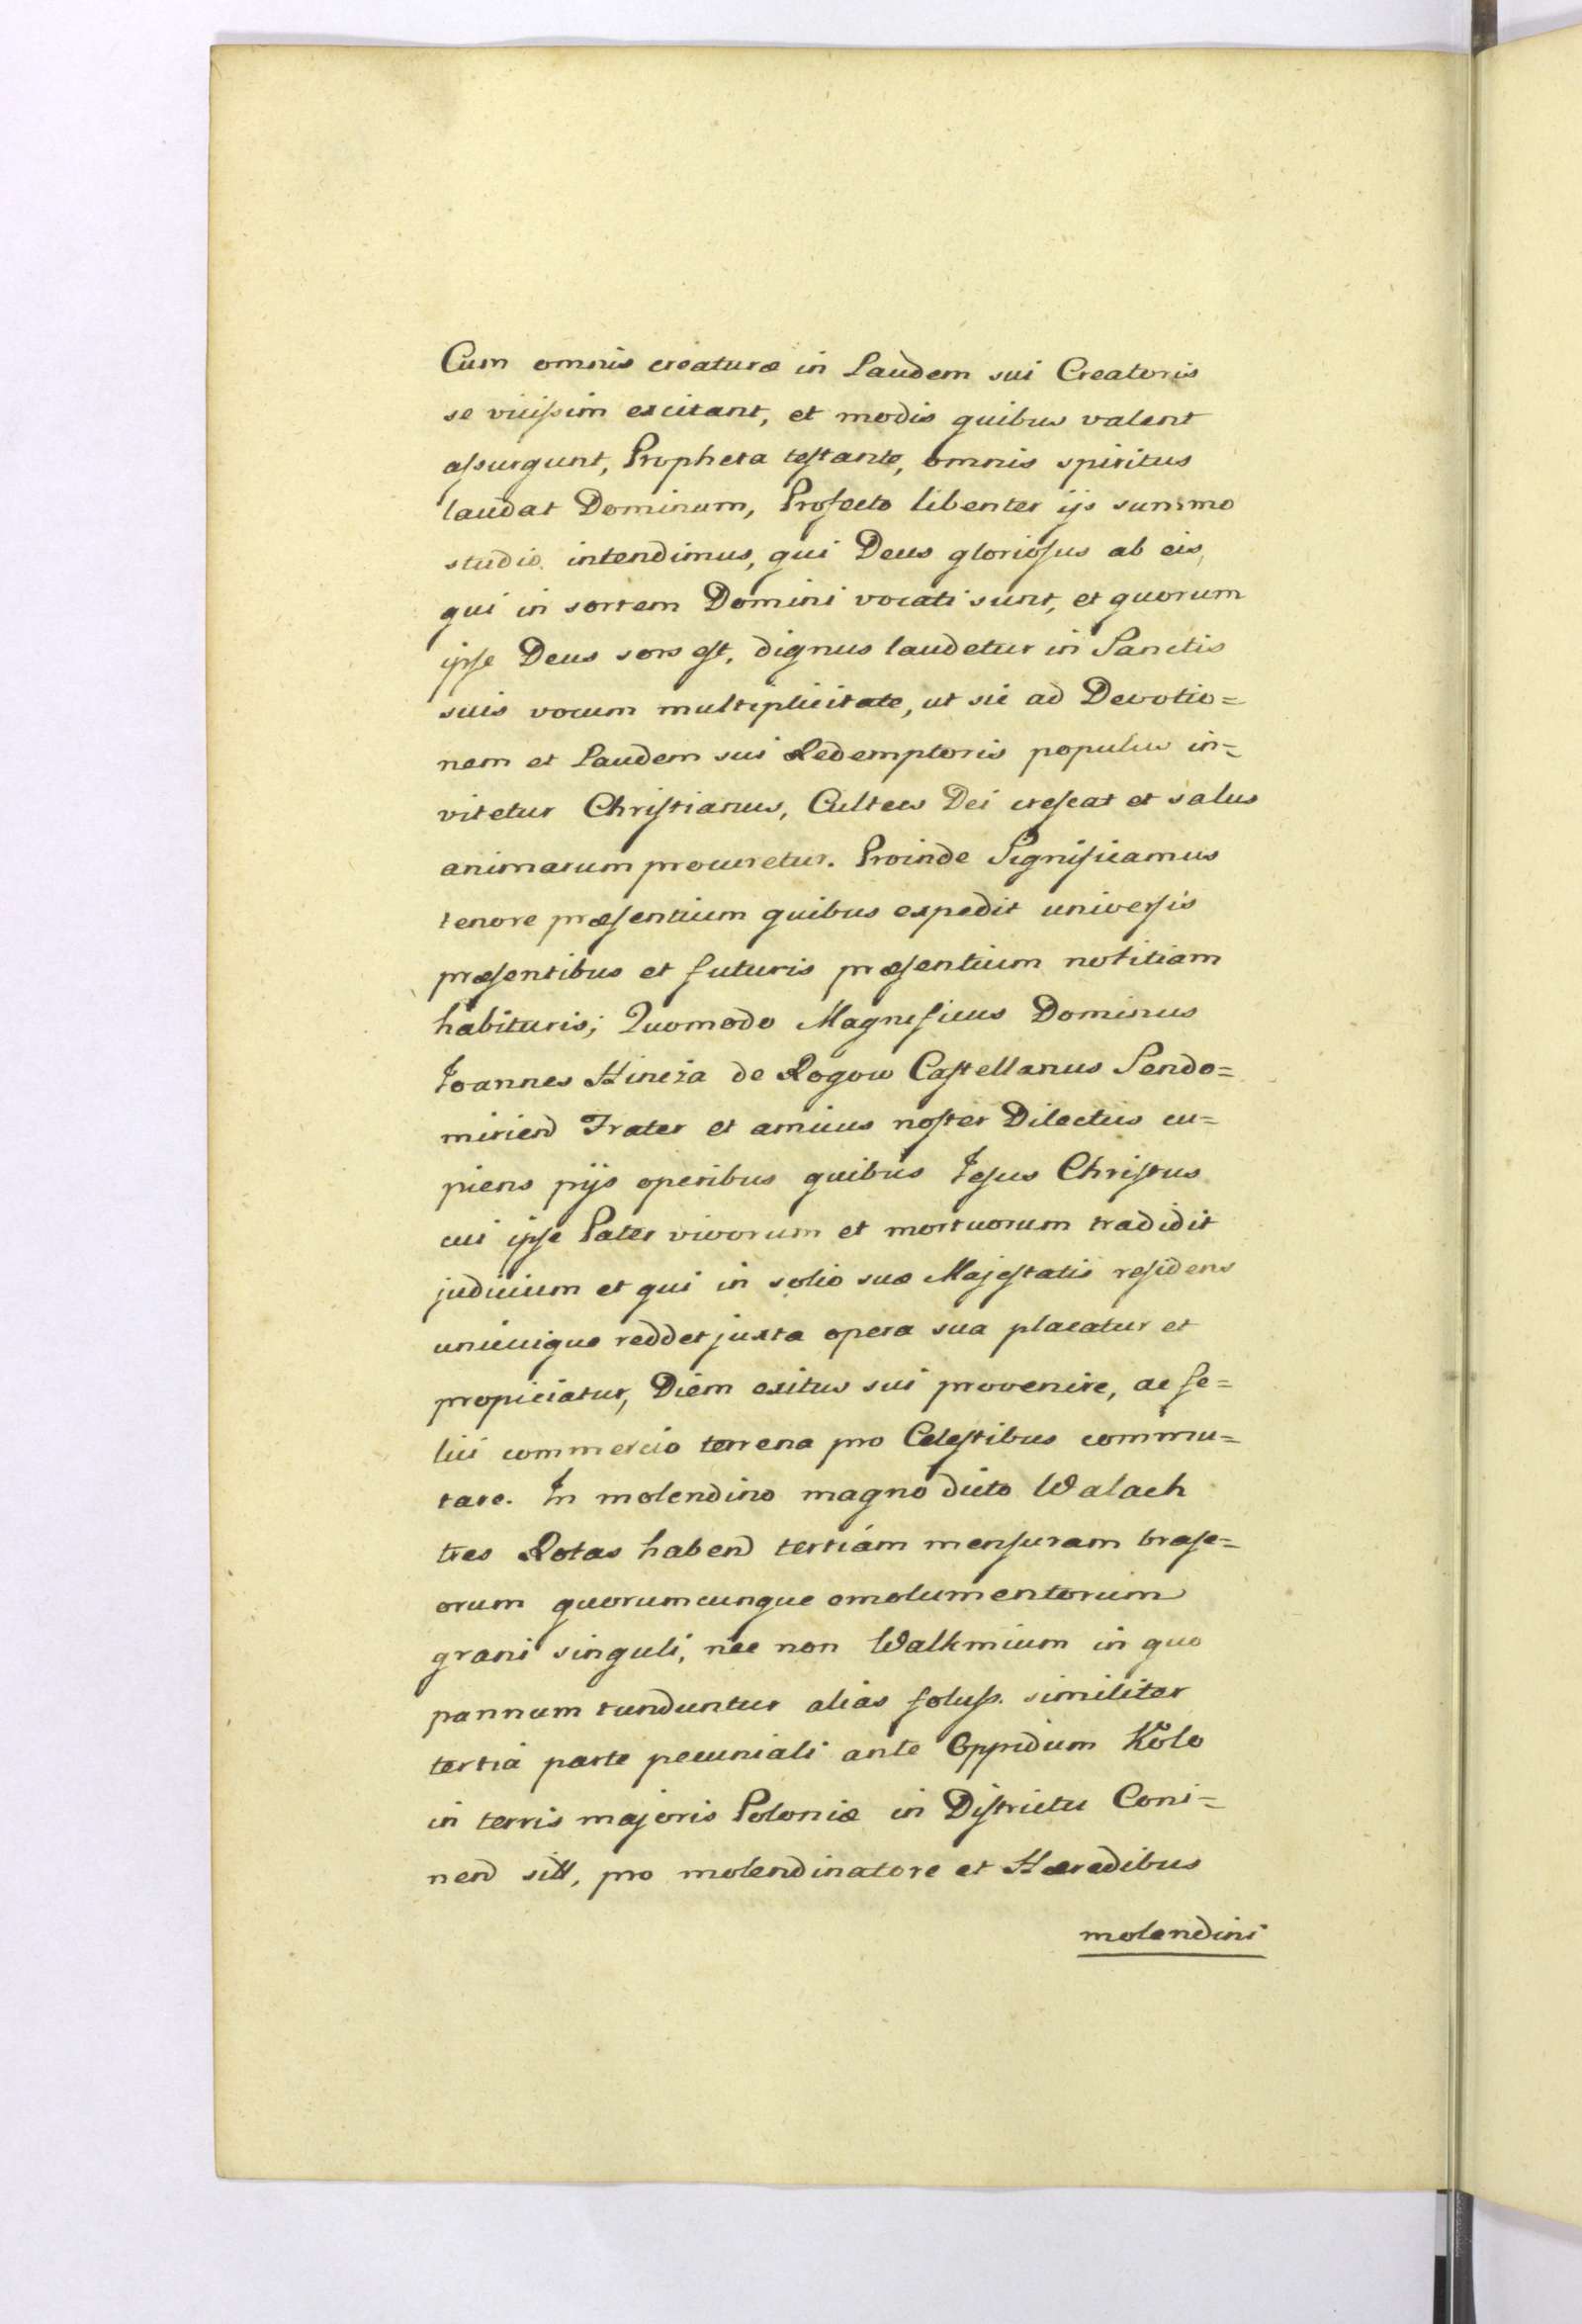 Cum omnis creaturæ in Laudem sui Creatoris
se vicissim excitant, et modis quibus valent
assurgunt, Propheta testante, omnis spiritus
laudat Dominum, Profecto libenter ijs summo
studio intendimus, qui Deus gloriosus ab eis,
qui in sortem Domini vocati sunt, et quorum
ipse Deus sors est, dignus laudetur in Sanctis
suis vocum multiplicitate, ut sic ad Devotio=
nem et Laudem sui Redemptoris populus in=
vitetur Christianus, Cultus Dei crescat et salus
animarum procuretur. Proinde Significamus
tenore præsentium quibus expedit universis
præsentibus et futuris præsentium notitiam
habituris; Quomodo Magnificus Dominus
Joannes Hincza de Rogow Castellanus Sendo=
mirien Frater et amicus noster Dilectus cu=
piens pijs operibus quibus Jesus Christus
cui ipse Pater vivorum et mortuorum tradidit
judicium et qui in solio suæ Majestatis residens
unicuique reddet juxta opera sua placatur et
propiciatur, Diem exitus sui provenire, ac fe=
lici commercio terrena pro Celestibus commu=
tare. In molendino magno dicto Walach
tres Rotas haben tertiam mensuram brase=
orum quorumcunque emolumentorum
grani singuli, nec non Walkmium in quo
pannum tunduntur alias foluss. similiter
tertia parte pecuniali ante Oppidum Koło
in terris majoris Poloniæ in Districtu Coni=
nen sitt, pro molendinatore et Hæredibus
molendini